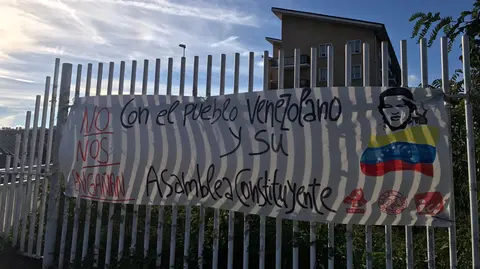 NO
NOS
ENGAÑAN
Con el pueblo Venezolano
y su
Asamblea Constituyente